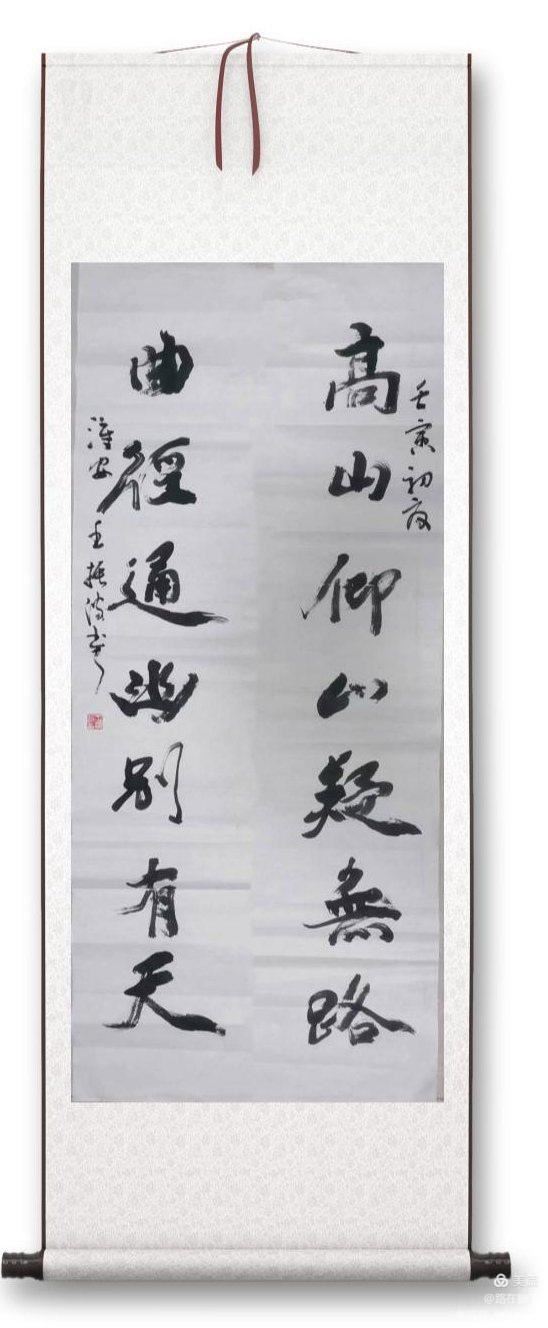 壬寅初夏
高山仰止疑無路
曲徑通幽別有天
淮安王振波書
美篇
@路在